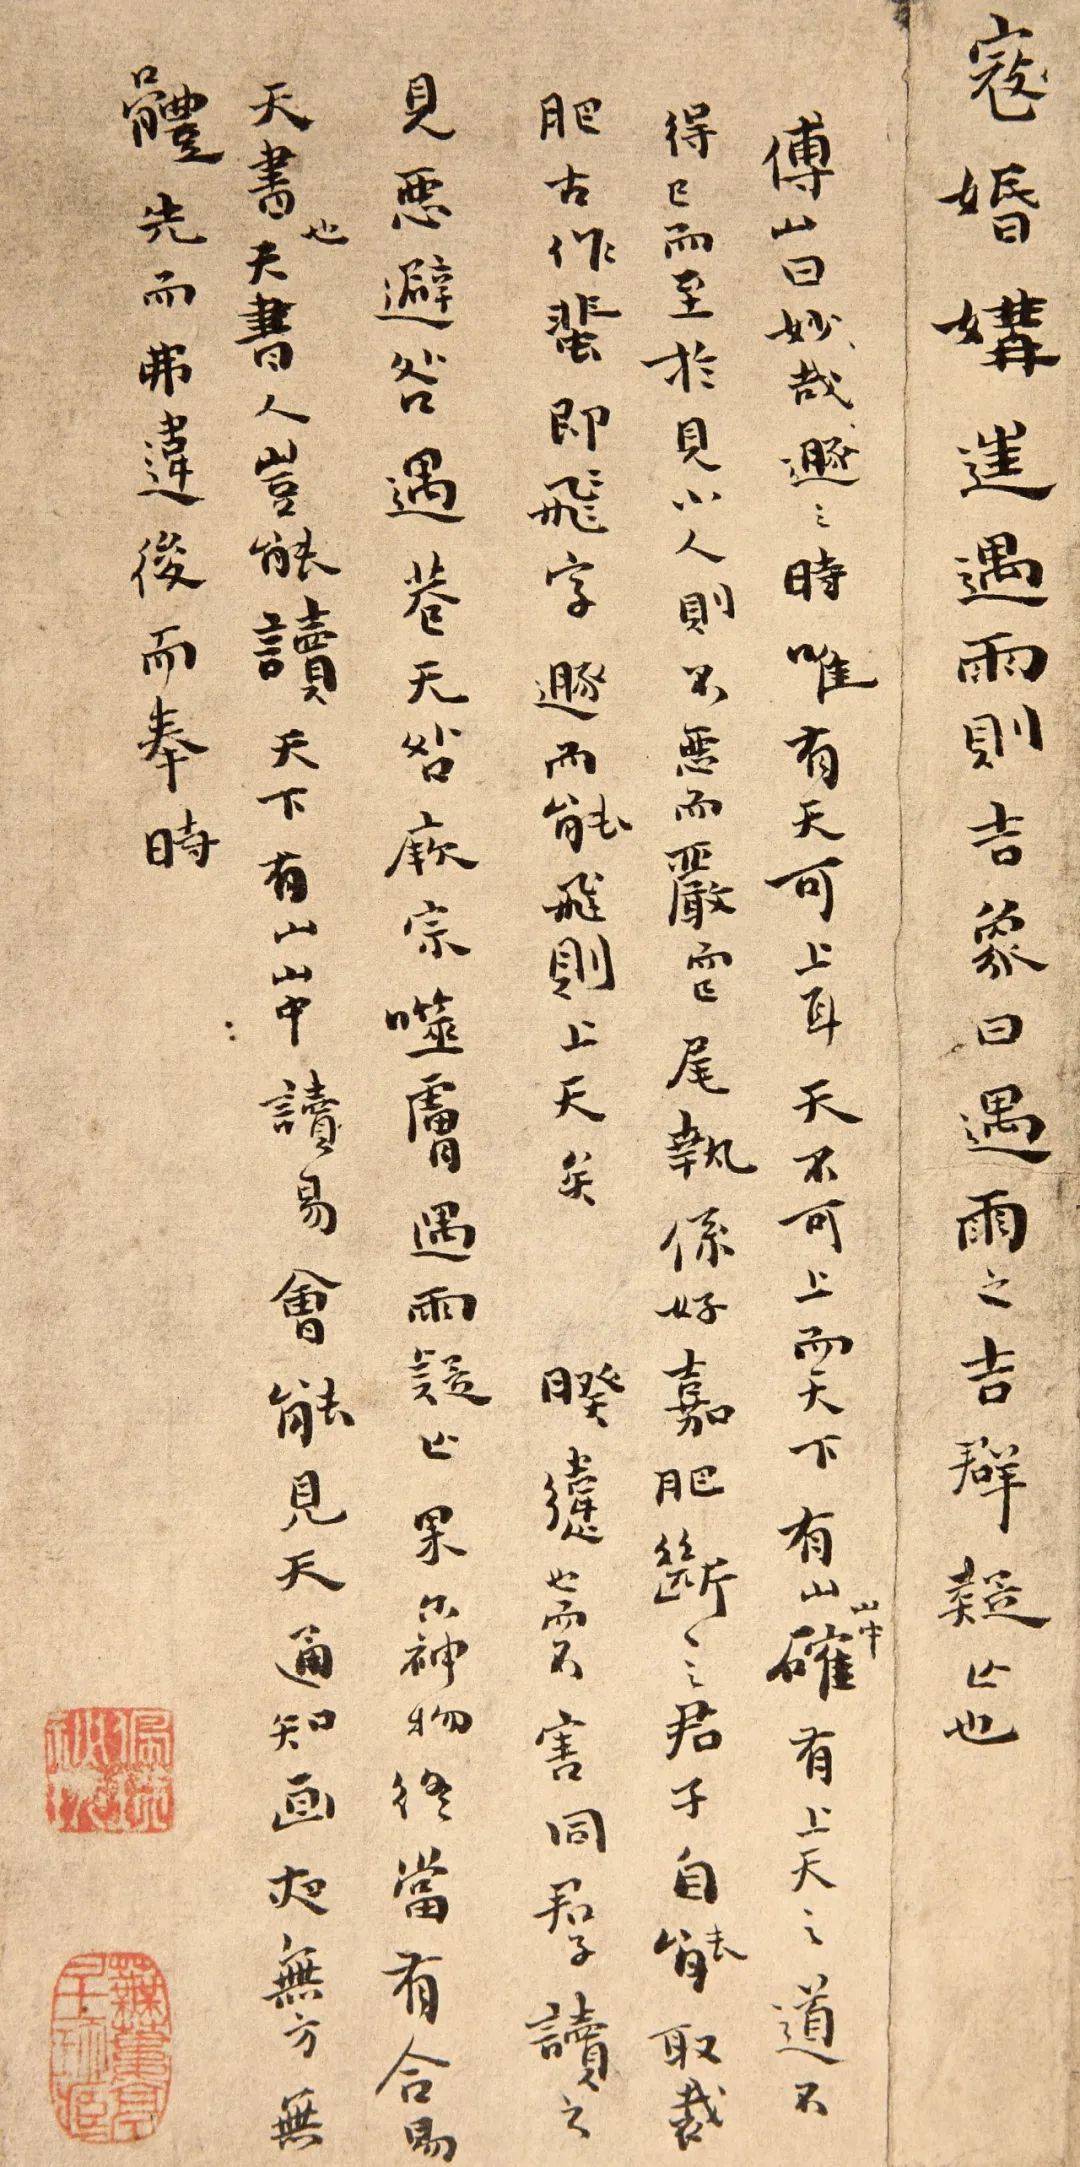 寇婚媾進遇雨則吉象曰遇雨之吉群疑亡也
傅山曰妙哉遯之時唯有天可上耳天不可上而天下有山山中確有上天之道不
得已而至於見小人則不惡而嚴而已尾執係好嘉肥斷斷之君子自能取裁
肥古作蜚即飛字遯而能飛則上天矣 睽違也而不害同君子讀之
見惡避咎遇巷无咎厥宗噬膚遇雨疑亡果尔神物終當有合易
天書也天書人豈能讀天下有山山中讀易會能見天通知晝夜無方無
體先而弗違後而奉時